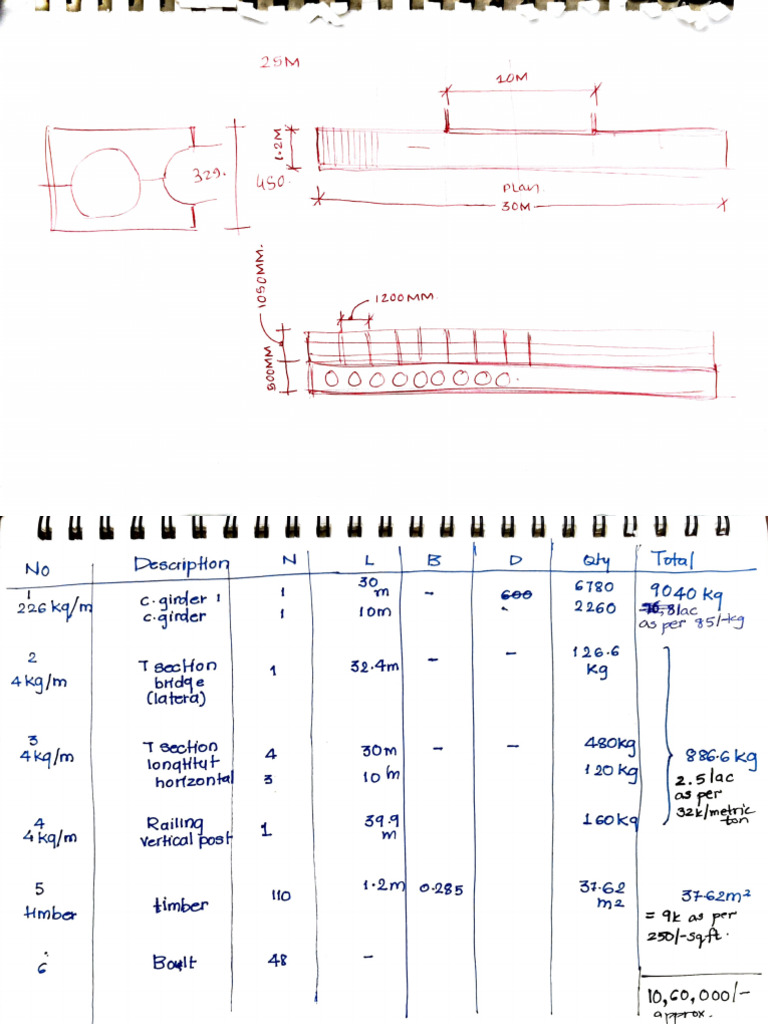 25M
10M
1.2M
329.
450.
PLAN
30M
1050MM.
1200MM.
500MM
No Description N L B D Qty Total
1 c.girder 1 1 30 m - 600 6780 9040 kg
226 kg/m c.girder 1 10m 2260 8lac
as per 85/-kg
2 T section 1 32.4m - - 126.6
4 kg/m bridge kg
(latera)
3 T section 4 30m - - 480kg 886.6 kg
4kg/m longtitut
horizontal 3 10m 120 kg 2.5lac
as per
32k/metric
ton
4 Railing 1 39.9 160kg
4 kg/m vertical post m
5 timber 110 1.2m 0.285 37.62 37.62m²
timber m2
= 9k as per
250/-sqft.
6 Boult 48 -
10,60,000/-
approx.